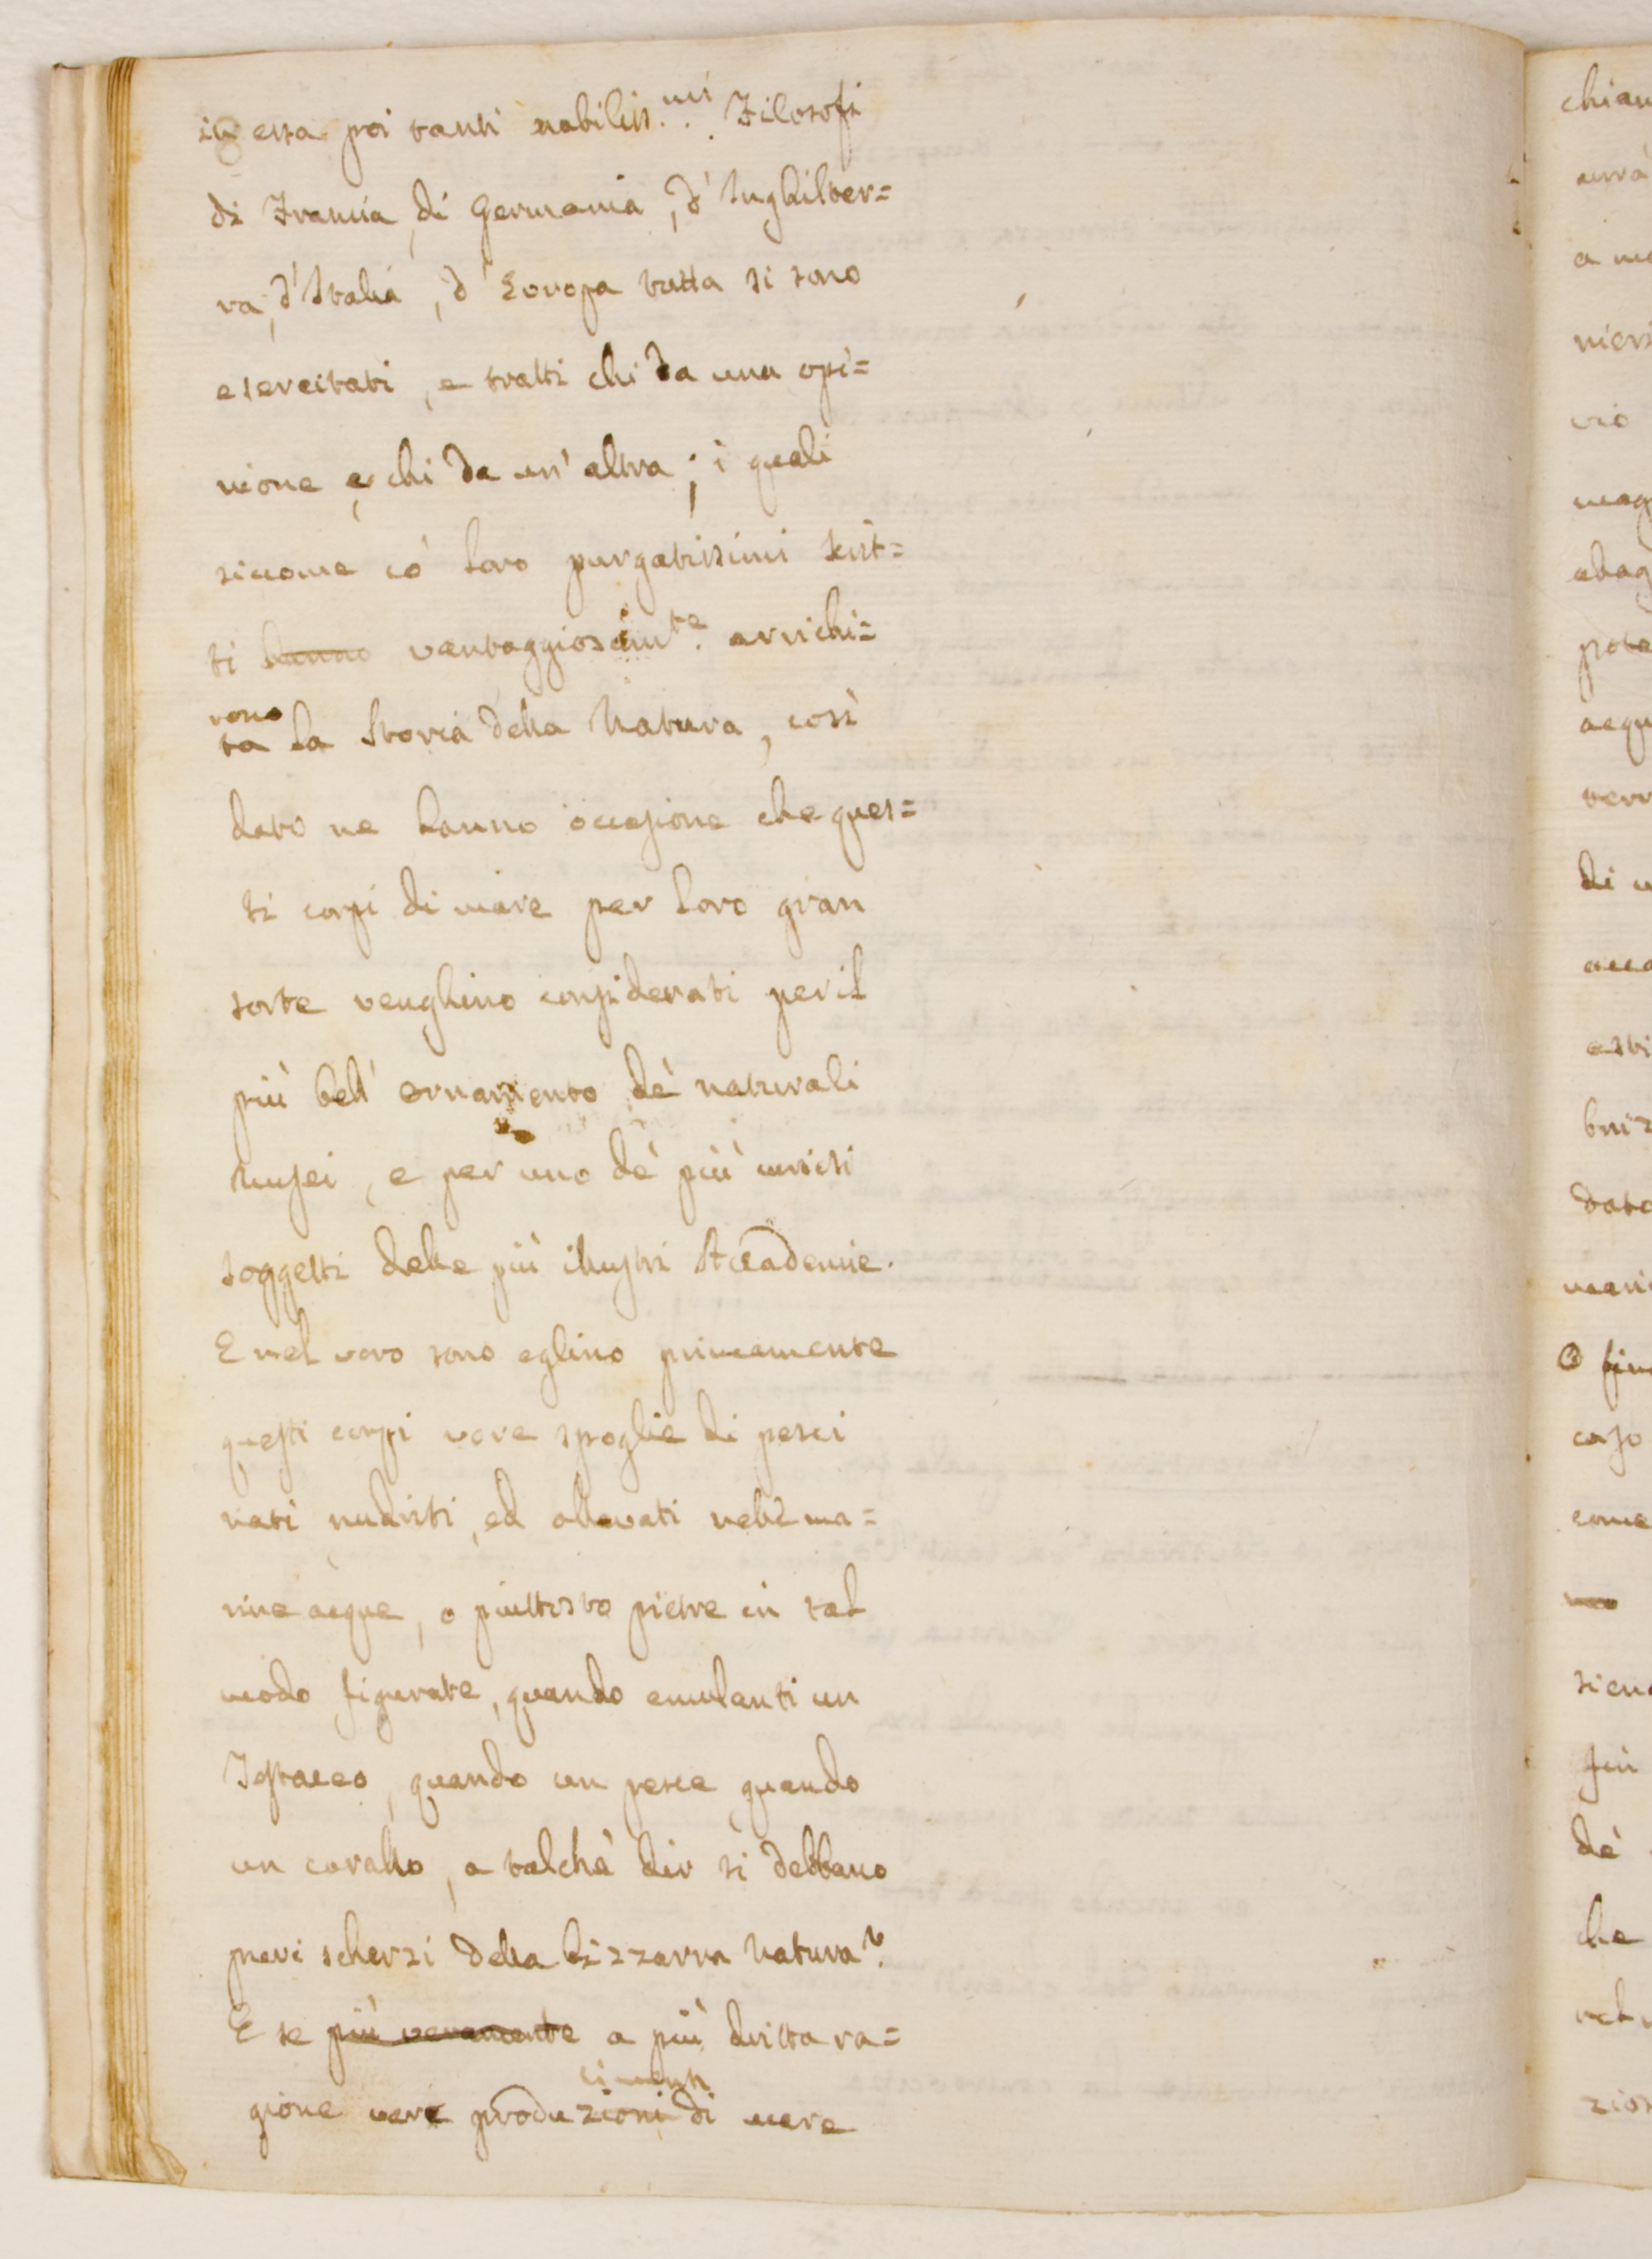 in essa poi tanti nobiliss.mi Filosofi
di Francia, di Germania, d' Inghilter=
ra, d' Italia, d' Europa tutta si sono
esercitati, e tratti chi da una opi=
nione e chi da un' altra; i quali
siccome co' loro purgatissimi scrit=
ti hanno vantaggiosam.te arrichi=
rono
ta la Storia della Natura, così
dato ne hanno occasione che ques=
ti corpi di mare per loro gran
sorte venghino considerati per il
più bell' ornamento de' naturali
Musei, e per uno de' più
soggetti delle più illustri Accademie.
E nel vero sono eglino primeamente
questi corpi vere spoglie di pesci
nati nudriti, ed allevati nelle ma=
rine acque, o piuttosto pietre in tal
modo figurate, quando emulanti un
Testaceo, quando un pesce, quando
un corallo, a talchè dir si debbano
meri scherzi della bizzarra Natura?
E se più veramente a più dritta ra=
cimenti
gione vere produzioni di mare
chiam
a me
mag
abag
pote
acqu
terr
di
dato
caso
come
sien
fin
de'
che
zion